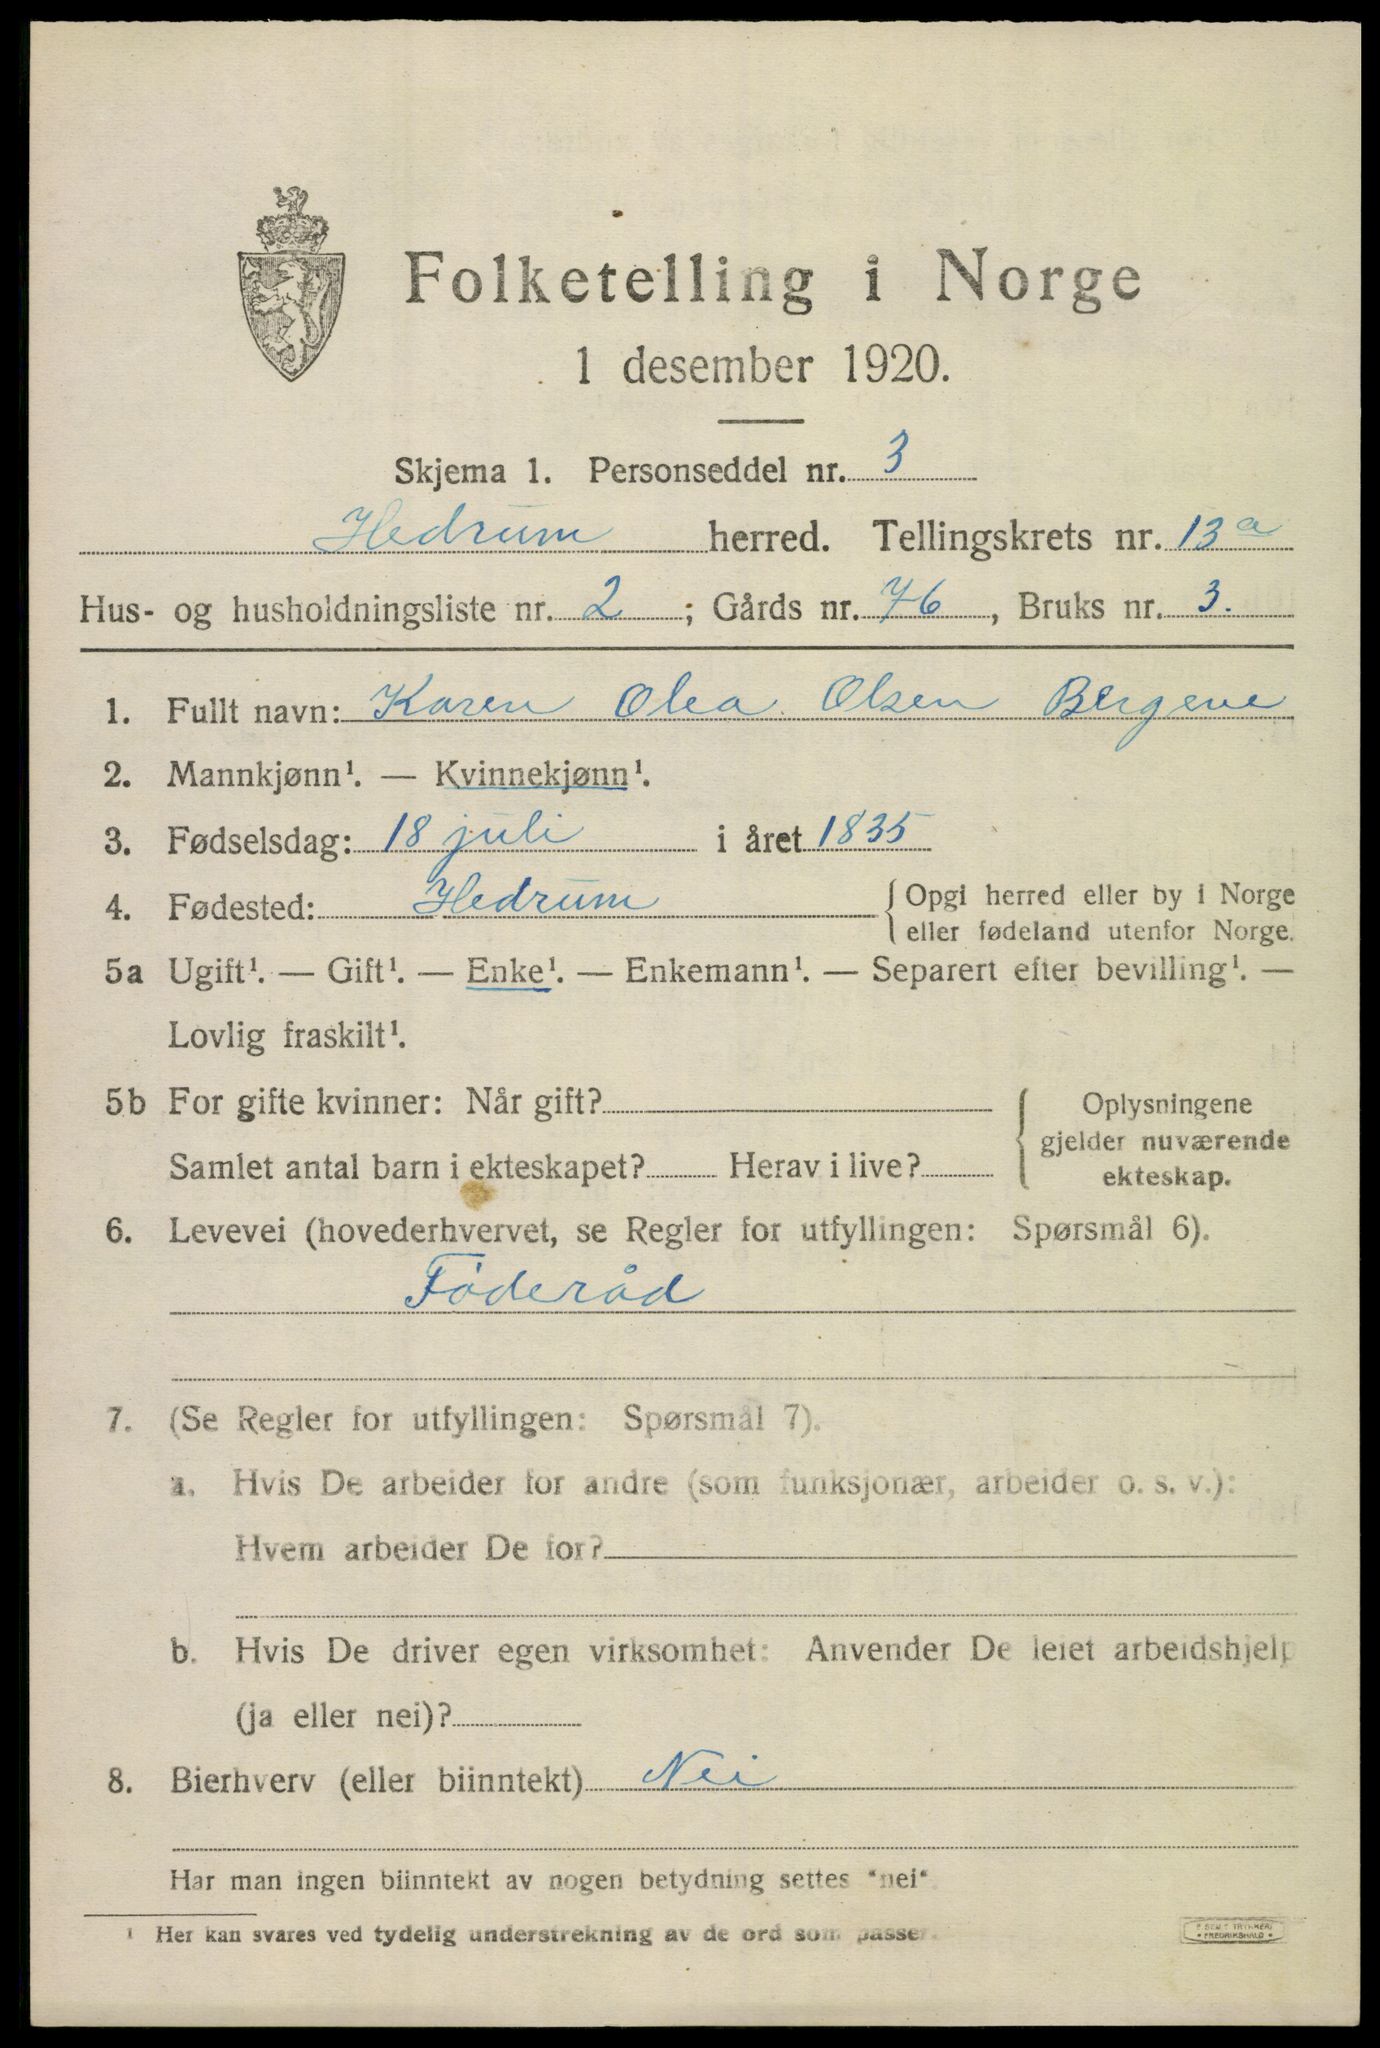 Folketelling i Norge
1 desember 1920.
Skjema 1. Personseddel nr. 3
Hedrum herred. Tellingskrets nr. 13a
Hus- og husholdningsliste nr. 2; Gårds nr. 76, Bruks nr. 3.
1. Fullt navn: Karen Olea Olsen Bergene
2. Mannkjønn¹. — Kvinnekjønn¹.
3. Fødselsdag: 18 juli i året 1835
4. Fødested: Hedrum { Opgi herred eller by i Norge
eller fødeland utenfor Norge.
5a Ugift¹. — Gift¹. — Enke¹. — Enkemann¹. — Separert efter bevilling¹. —
Lovlig fraskilt¹.
5b For gifte kvinner: Når gift? { Oplysningene
gjelder nuværende
Samlet antal barn i ekteskapet? Herav i live?
ekteskap.
6. Levevei (hovederhvervet, se Regler for utfyllingen: Spørsmål 6).
Föderåd
7. (Se Regler for utfyllingen: Spørsmål 7).
a. Hvis De arbeider for andre (som funksjonær, arbeider o. s. v.):
Hvem arbeider De for?
b. Hvis De driver egen virksomhet: Anvender De leiet arbeidshjelp
(ja eller nei)?
8. Bierhverv (eller biinntekt) Nei
Har man ingen biinntekt av nogen betydning settes "nei".
¹ Her kan svares ved tydelig understrekning av de ord som passer.
FREDRIKSHALD